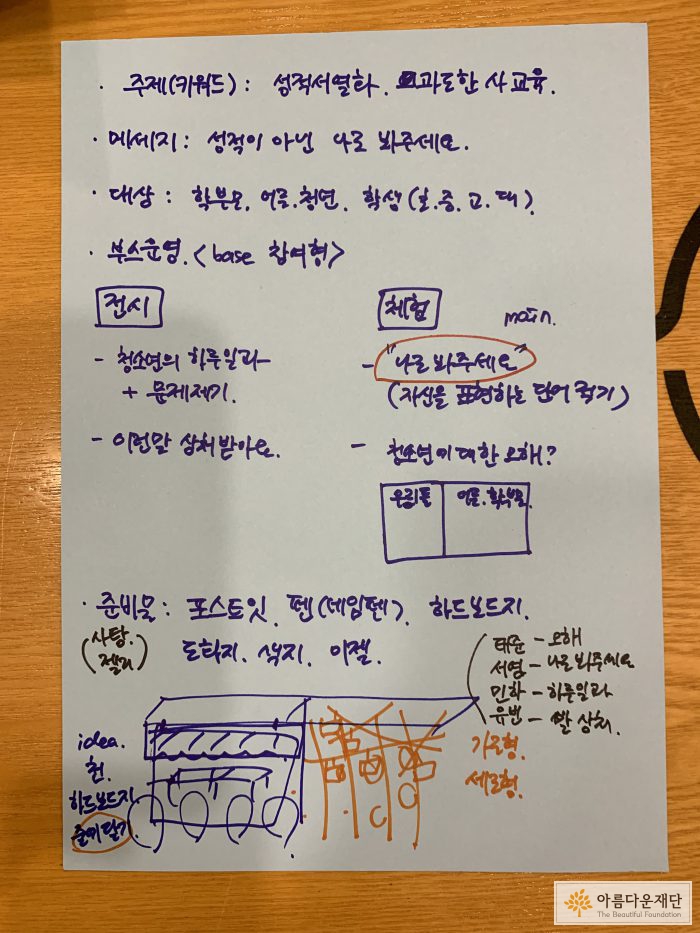 · 주제(키워드) : 성적서열화. 과도한 사교육.
· 메세지 : 성적이 아닌 나로 봐주세요.
· 대상 : 학부모, 어른.청년, 학생(초.중.고.대).
· 부스운영.<base 참여형>
전시
- 청소년의 하루일과
+ 문제제기.
- 이런말 상처받아요.
체험
main.
- "나로 봐주세요"
(자신을 표현하는 단어 적기)
- 청소년에 대한 오해?
우리들
어른.학부모.
· 준비물 : 포스트잇. 펜(네임펜). 하드보드지.
(사탕.
젤리)
도화지. 색지. 이젤.
태준 - 오해
서영 - 나로봐주세요
민하 - 하루일과
유빈 - 말 상처.
가로형.
세로형.
idea.
천.
하드보드지
줄에 달기
아름다운재단
The Beautiful Foundation